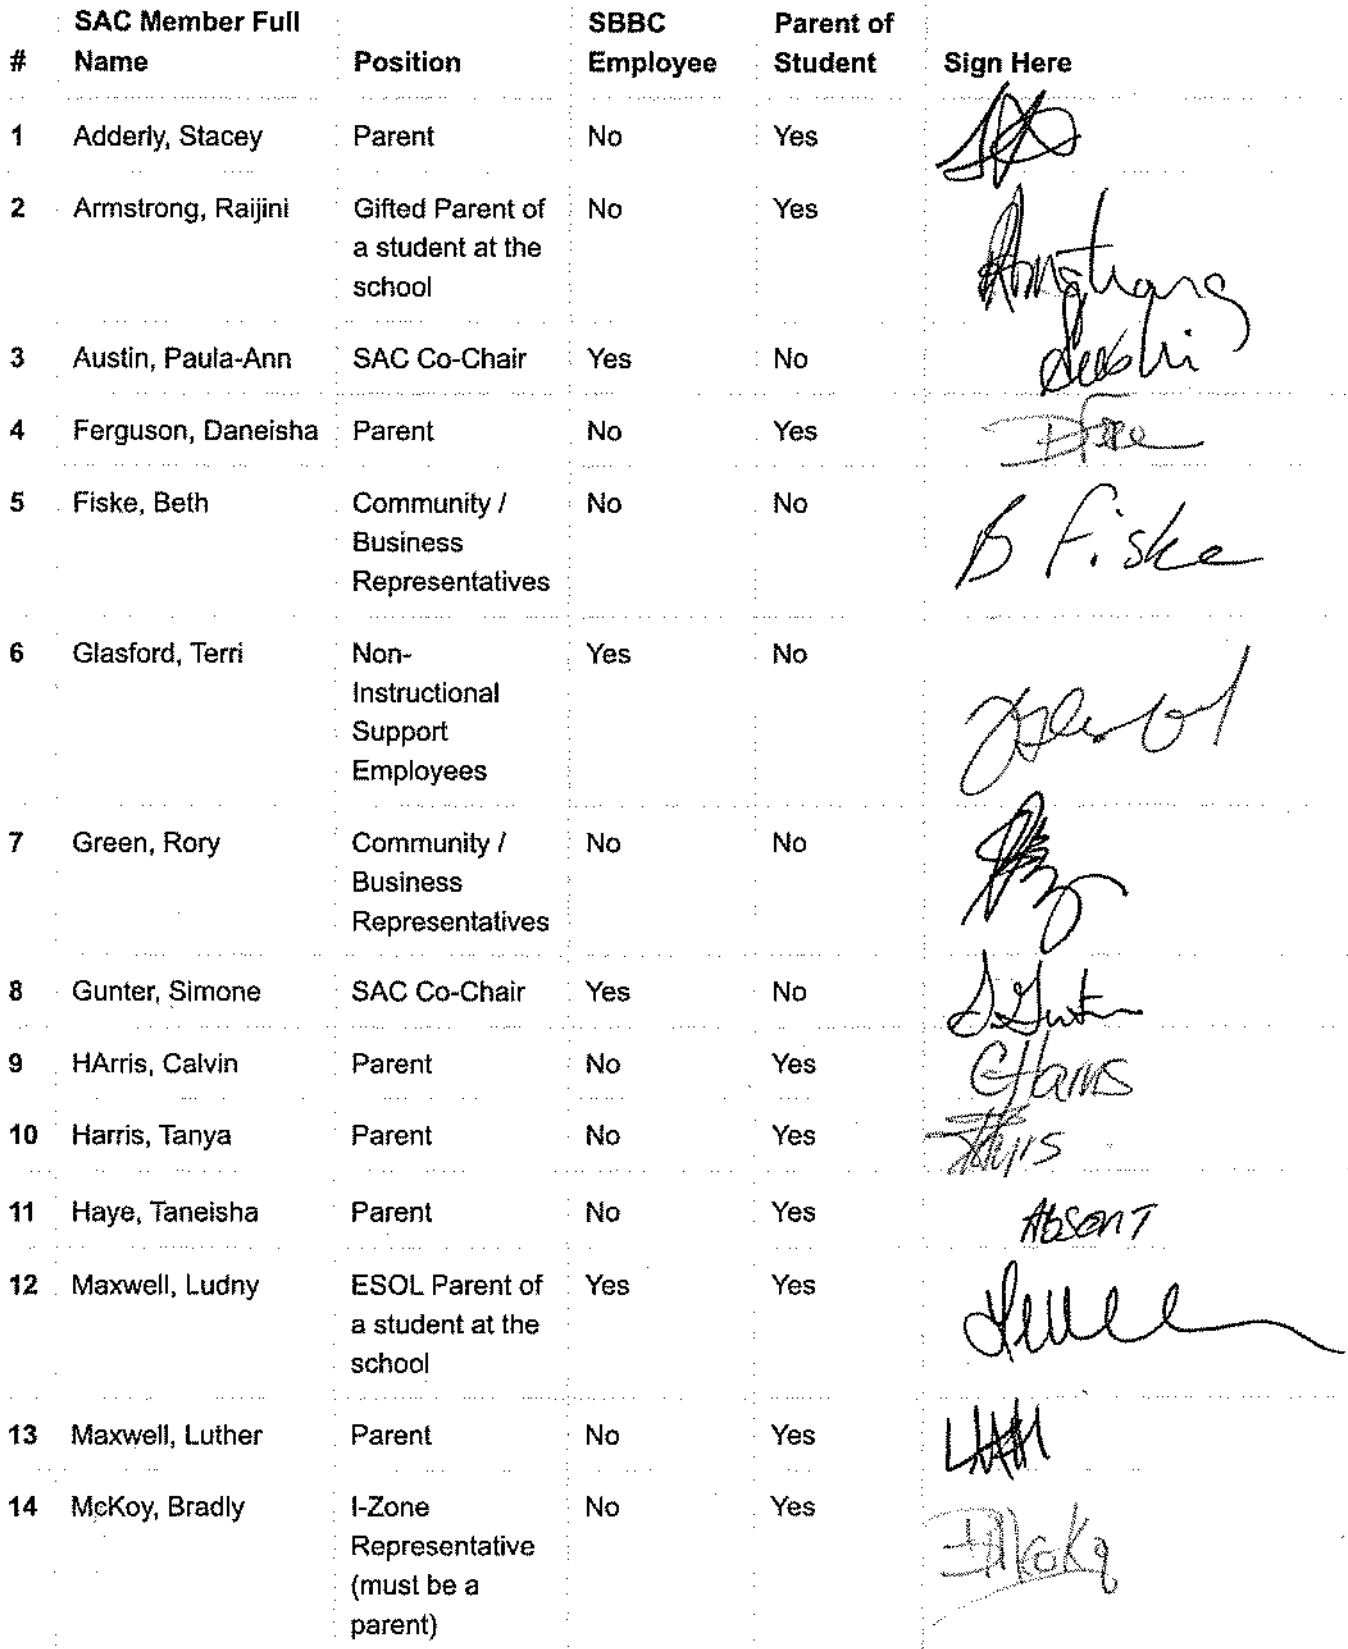 SAC Member Full SBBC Parent of
# Name Position Employee Student Sign Here
1 Adderly, Stacey Parent No Yes
2 Armstrong, Raijini Gifted Parent of No Yes
a student at the
school Armstrong
3 Austin, Paula-Ann SAC Co-Chair Yes No
4 Ferguson, Daneisha Parent No Yes
5 Fiske, Beth Community / No No
Business B Fiske
Representatives
6 Glasford, Terri Non- Yes No
Instructional
Support
Employees
7 Green, Rory Community / No No
Business
Representatives
8 Gunter, Simone SAC Co-Chair Yes No S. Gunter
9 HArris, Calvin Parent No Yes CHarris
10 Harris, Tanya Parent No Yes
11 Haye, Taneisha Parent No Yes AbSenT
12 Maxwell, Ludny ESOL Parent of Yes Yes
a student at the
school
13 Maxwell, Luther Parent No Yes
14 McKoy, Bradly I-Zone No Yes
Representative
(must be a
parent)